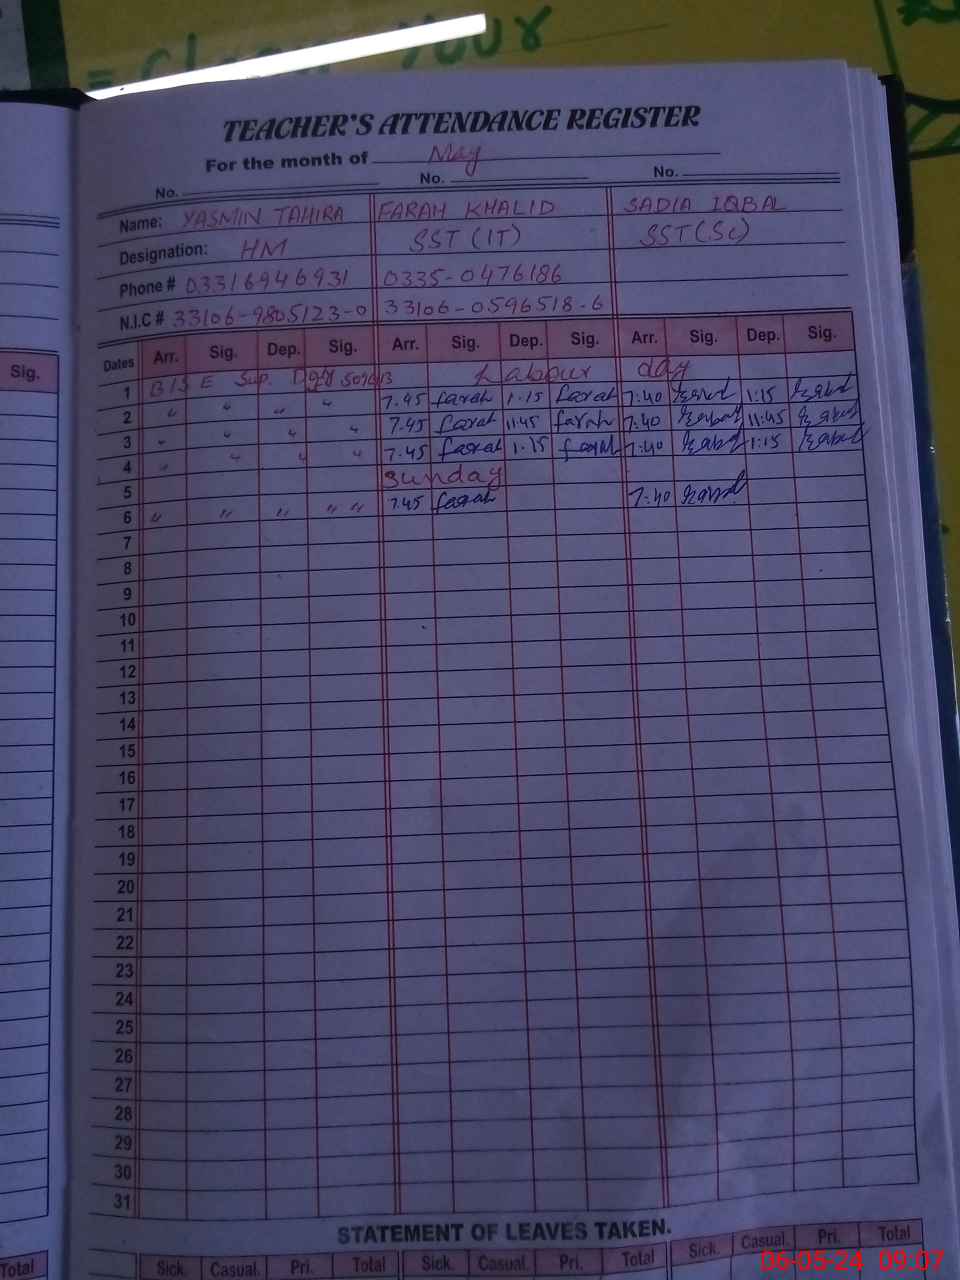 = clean your
TEACHER'S ATTENDANCE REGISTER
For the month of May
No. No. No.
Name: YASMIN TAHIRA FARAH KHALID SADIA IQBAL
Designation: HM SST (IT) SST (Sc)
Phone # 03316946931 0335-0476186
N.I.C # 33106-9805123-0 33106-0596518-6
Sig. Dates Arr. Sig. Dep. Sig. Arr. Sig. Dep. Sig. Arr. Sig. Dep. Sig.
1 BISE Sup. Labour day
2 " " " " 7.45 farah 1.15 farah 7:40 1:15
3 " " " " 7.45 farah 11:45 farah 7:40 11:45
4 " " " " 7.45 farah 1.15 farah 7:40 1:15
5 Sunday
6 " " " " " 7.45 farah 7:40
7
8
9
10
11
12
13
14
15
16
17
18
19
20
21
22
23
24
25
26
27
28
29
30
31
STATEMENT OF LEAVES TAKEN.
Total Sick. Casual. Pri. Total Sick. Casual. Pri. Total Sick. Casual. Pri. Total
06-05-24 09:07